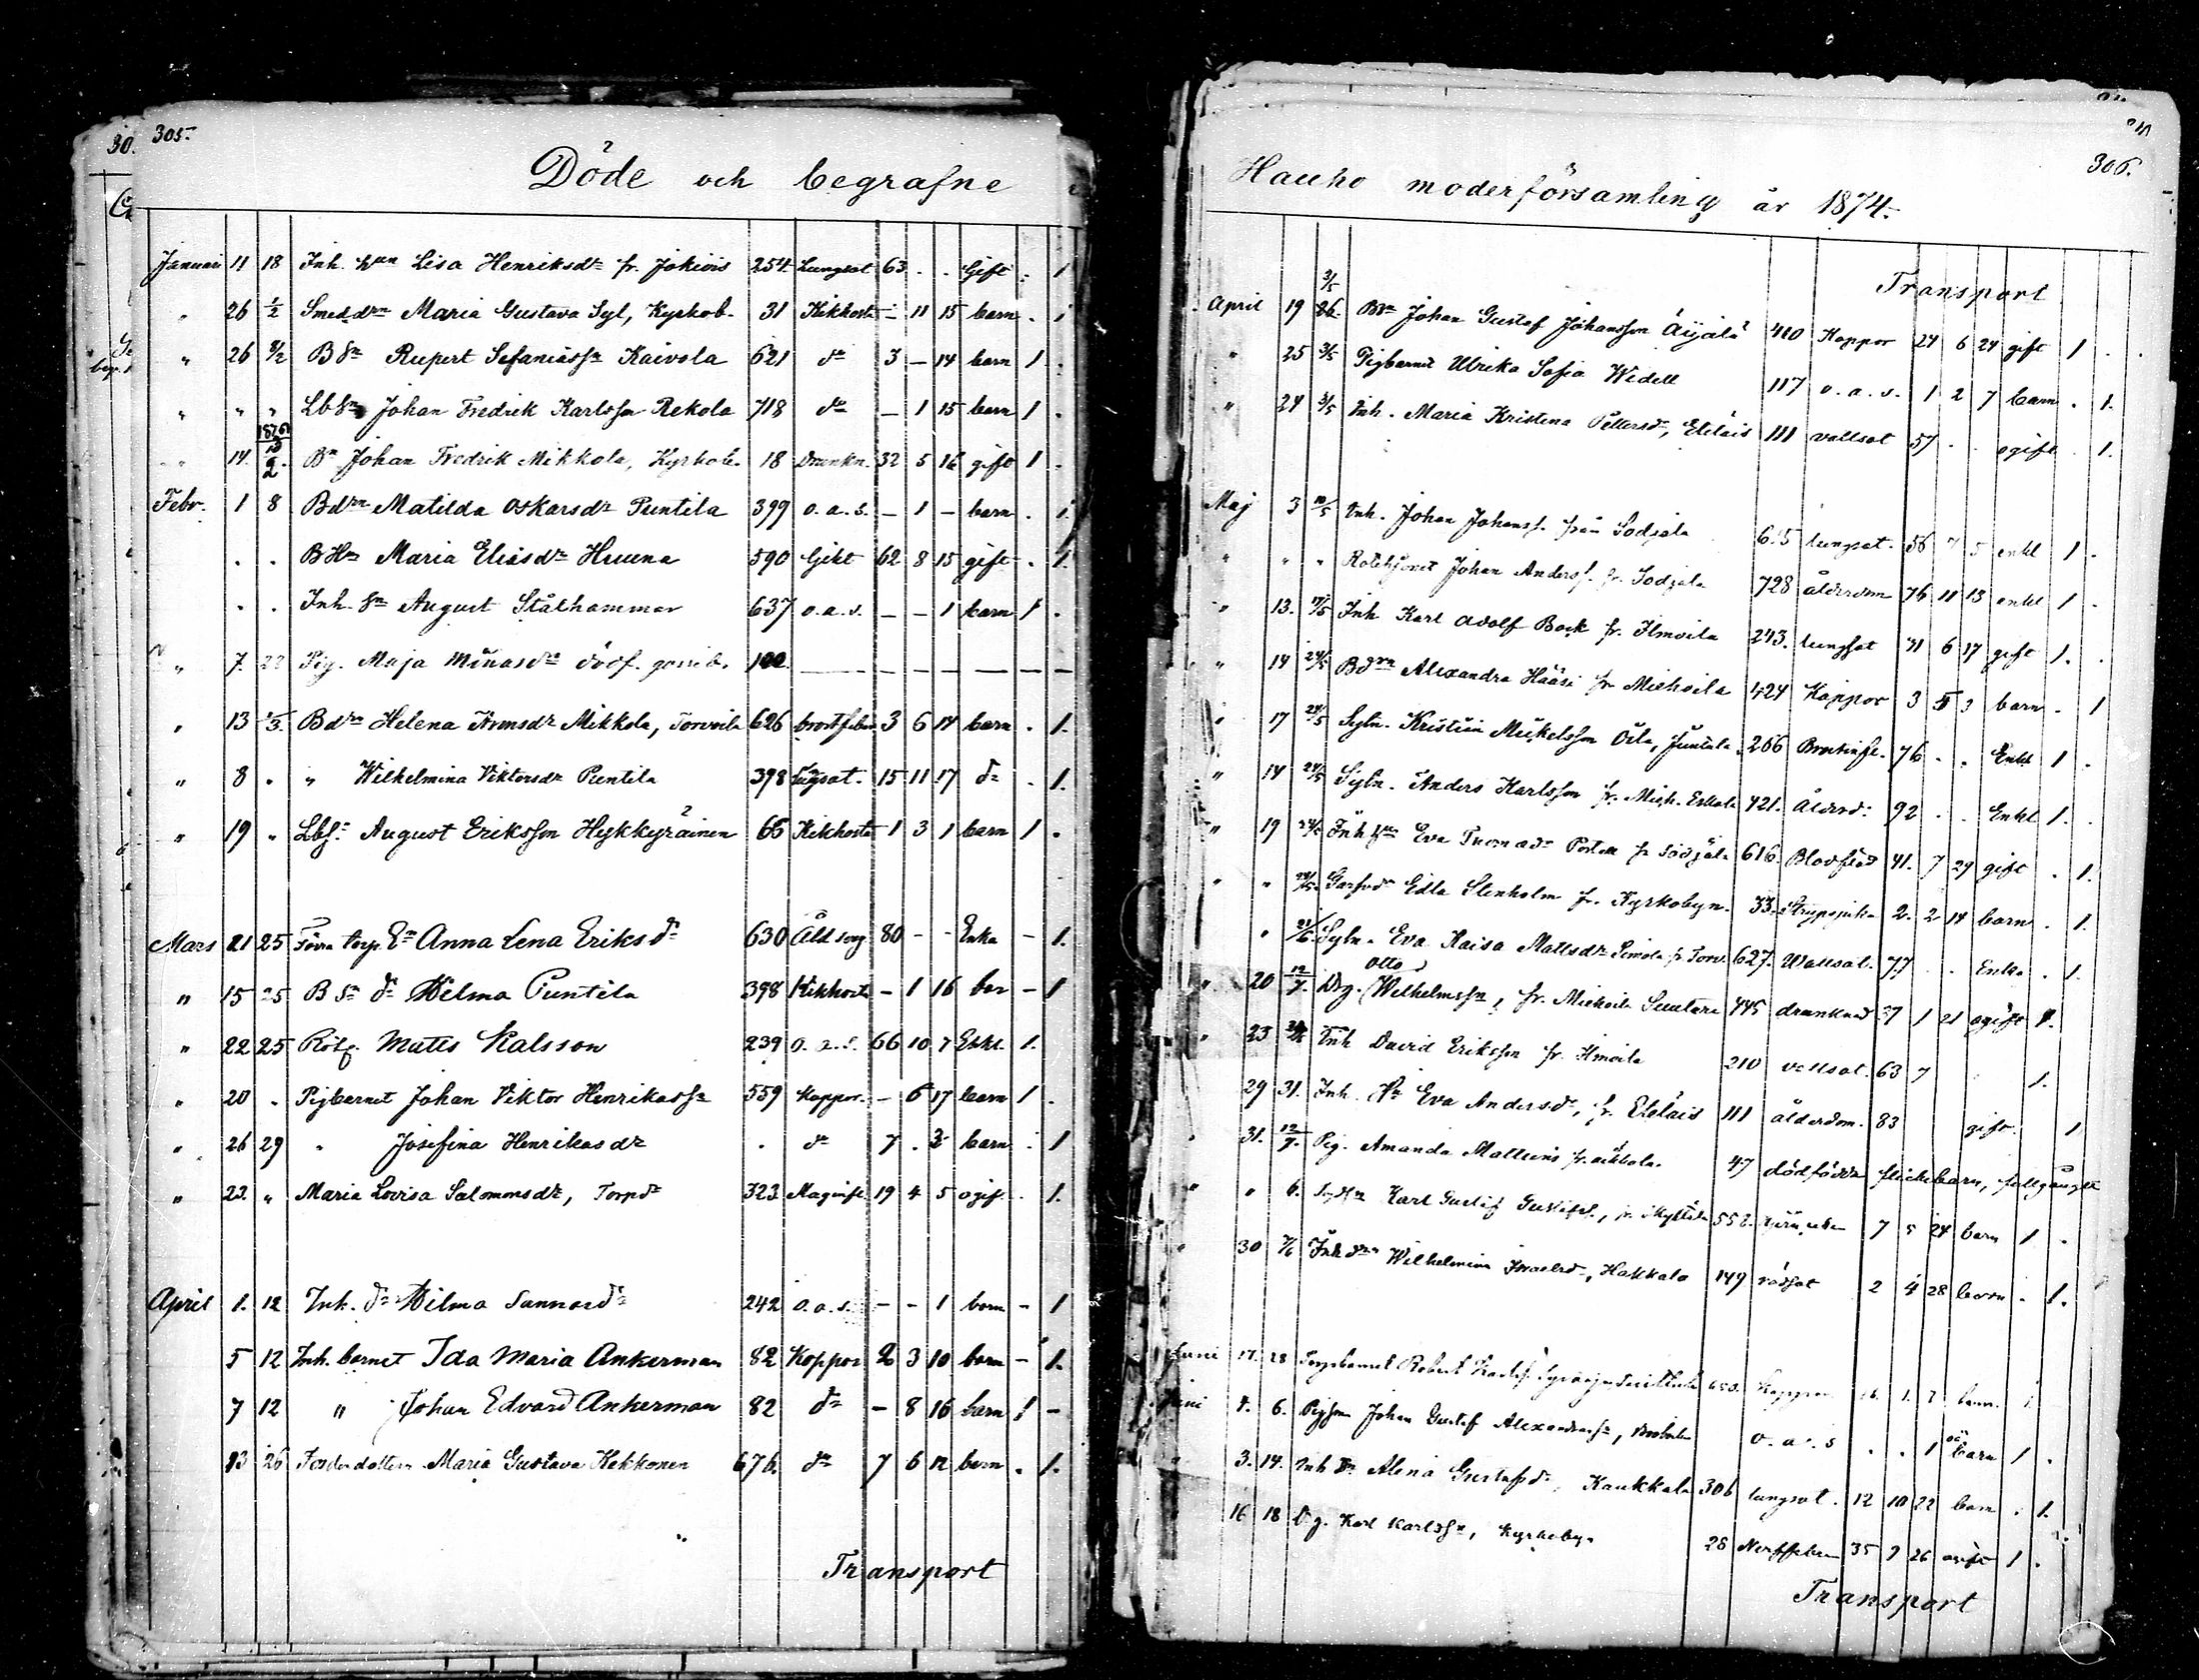 305.
Döde och begrafne
Januari 11 18 Inh. hun Lisa Henriksdr fr. Jokiois 254 Lungsot 63 . . Gift . 1
" 26 1/2 Smeddrn Maria Gustava Syl, Kyrkob. 31 Kikhosta – 11 15 barn . 1
" 26 8/2 B Sn Rupert Sefaniassn Kaivola 621 do 3 – 14 barn 1 .
" " " Lb Sn Johan Fredrik Karlsson Rekola 718 do – 1 15 barn 1 .
" 14. Bn Johan Fredrik Mikkola, Kyrkob. 18 Drunkn. 32 5 16 gift 1 .
Febr. 1 8 Bdrn Matilda Oskarsdr Puntila 399 o.a.s. – 1 – barn . 1
. . B Hn Maria Eliasdr Huuna 590 Gikt 62 8 15 gift . 1.
. . Inh. Sn August Stålhammar 637 o.a.s. – – 1 barn 1 .
" 7. 22 Pig. Maja dödf. 100 — — — — — — —
" 13 1/3. Bdrn Helena Mikkola, Torvoila 626 3 6 14 barn . 1.
" 8 . " Wilhelmina Viktorsdr Puntila 398 Lugsot. 15 11 17 do . 1.
" 19 . Lbs. August Eriksson Hykkyräinen 66 Kikhosta 1 3 1 barn 1 .
Mars 21 25 Förra torp. En Anna Lena Eriksdr 630 80 – – Enka – 1.
" 15 25 B Sn dr Hilma Puntila 398 Kikhosta – 1 16 bar – 1
" 22 25 Rotf. Mats Kalsson 239 o.a.s. 66 10 7 Enkl. 1.
" 20 . Pigbarnet Johan Viktor Henrikassn 559 Koppor. – 6 17 barn 1 .
" 26 29 " Josefina Henrikasdr . do 7 . 2 barn . 1
" 22. " Maria Lovisa Salomonsdr, Torpdr 323 Maginfl 19 4 5 ogif. . 1.
April 1. 12 Inh. dr Hilma Sannasdr 242 o.a.s. – – 1 barn – 1
5 12 Inh. barnet Ida Maria Ankerman 82 Koppor 2 3 10 barn – 1.
7 12 " Johan Edvard Ankerman 82 do – 8 16 barn 1 –
13 26 Maria Gustava Kekkonen 676. do 7 6 12 barn . 1.
Transport
306.
Hauho moderförsamling år 1874.
Transport
April 19 3/5 26. Bn Johan Gustaf Johansson Äijälä 410 Koppor 24 6 24 gift 1 . .
" 25 3/5 Pigbarnet Ulrika Sofia Widell 117 o.a.s. 1 2 7 barn . 1.
" 24 3/5 Inh. Maria Kristina Pettersdr, Eteläis 111 vattsot 57 . . ogift . 1.
Maj 3 10/5 Inh. Johan Johanss. från Sodjala 615 lungsot. 56 7 5 enkl 1 .
" " " Rotehjonet Johan Anderss. fr. Sodjala 728 ålderdom 76 11 13 enkl 1 .
" 13. 17/5 Inh Karl Adolf Bock fr. Ilmoila 243. lungsot 71 6 17 gift 1. .
" 14 24/5 Bdrn Alexandra Hääsi fr Miehoila 424 Koppor 3 5 3 barn . 1
" 17 24/5 Sytn. Kristian Mickelsson Oila, 266 Bröstinfl. 76 . . Enkl 1 .
" 14 24/5 Sytn. Anders Karlsson fr. Mieh. Eskola 421. Ålderd: 92 . . Enkl 1. .
" 19 24/5 Inh hun Eva Thomasdr fr Sodjala 616. Blodflöd 41. 7 29 gift . 1.
" " Edla Stenholm fr. Kyrkobyn. 33. Strypsjuka 2. 2 14 barn . 1.
" Sytn. Eva Kaisa Mattsdr fr Torv. 627. Wattsot. 77 . . Enka . 1.
" 20 12/7. Drg. Otto Wilhelmssn, fr. Miehoila Suutara 445 drunknad 27 1 21 ogift 1.
" 23 Inh David Eriksson fr. Ilmoila 210 vattsot. 63 7 1.
29 31. Inh. Eva Andersdr, fr. Eteläis 111 ålderdom. 83 gift. 1
31. 12/7. Pig. Amanda 47 dödfödda flickebarn, fullgånget
" " 6. Karl Gustaf 552. 7 5 24 barn 1 .
" 30 7/6 Inh drn Wilhelmina Israelsdr, Hakkala 149 rödsot 2 4 28 barn . 1.
Juni 17. 28 Torpbarnet Robert 650. Koppor 1. 7 barn. 1
Juni 4. 6. Pigson Johan Gustaf Alexanderssn, o.a.s . . 1 oä barn 1 .
3. 14. Inh Dr. Alena Gustafsdr, Kaukkala 306 lungsot. 12 10 22 barn . 1.
16 18 Dg. Karl Karlssn, Kyrkobyn 28 Nerffeber 35 7 26 ogift 1 .
Transport